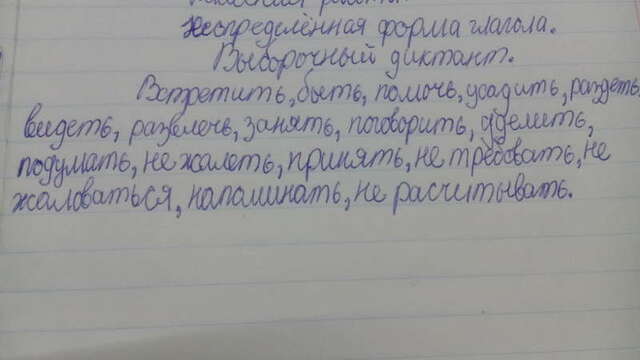 неопределённая форма глагола.
Выборочный диктант.
Встретить, быть, помочь, усадить, раздеть,
видеть, развлечь, занять, поговорить, уделить,
подумать, не жалеть, принять, не требовать, не
жаловаться, напоминать, не расчитывать.